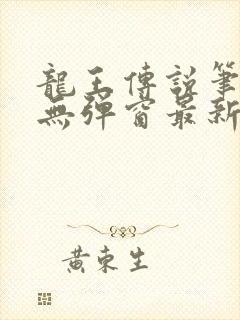 龍王傳說筆
無彈窗最新
黄東生